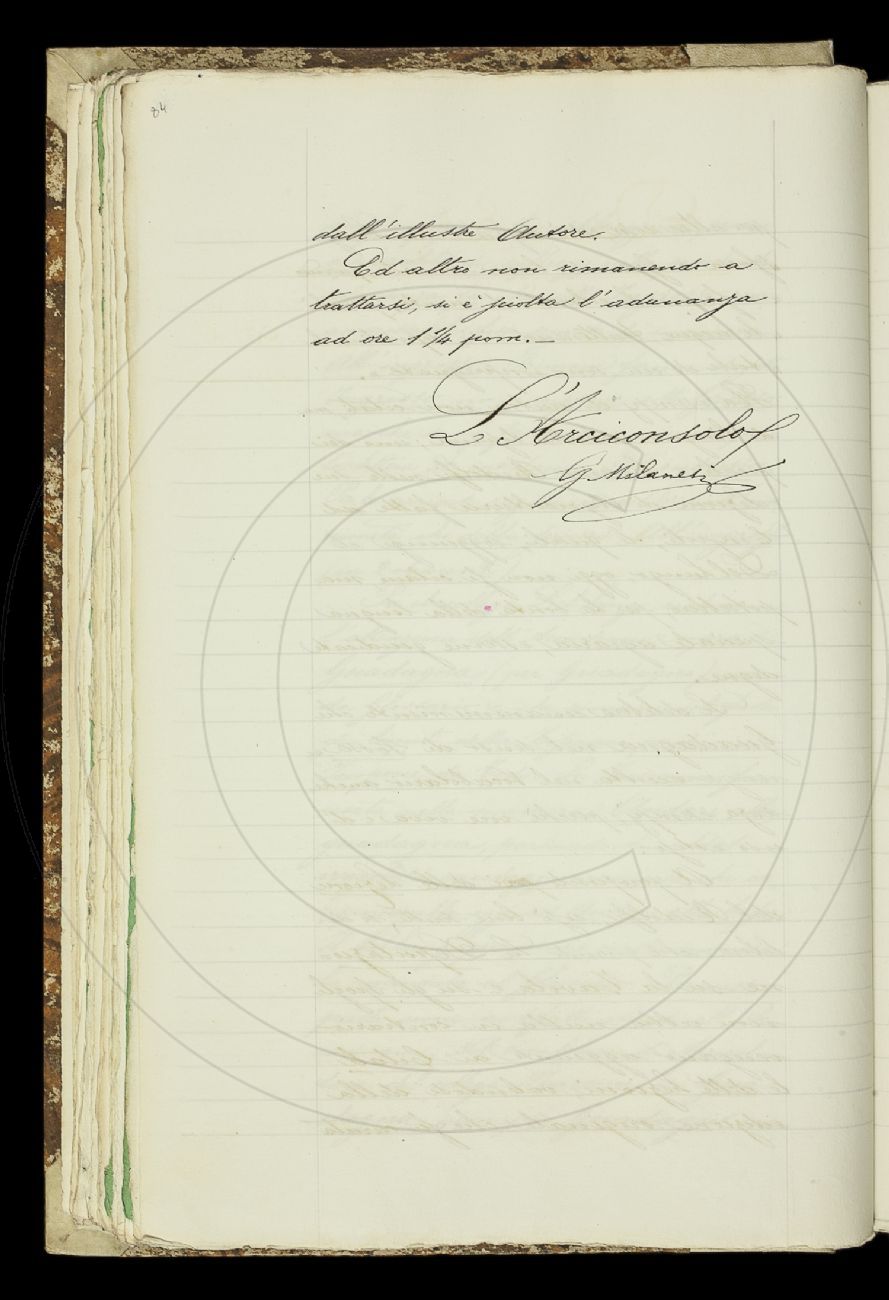 84
dall'illustre Autore.
Ed altro non rimanendo a
trattarsi, si è sciolta l'adunanza
ad ore 1 1/4 pom. —
L'Arciconsolo
G. Milanesi